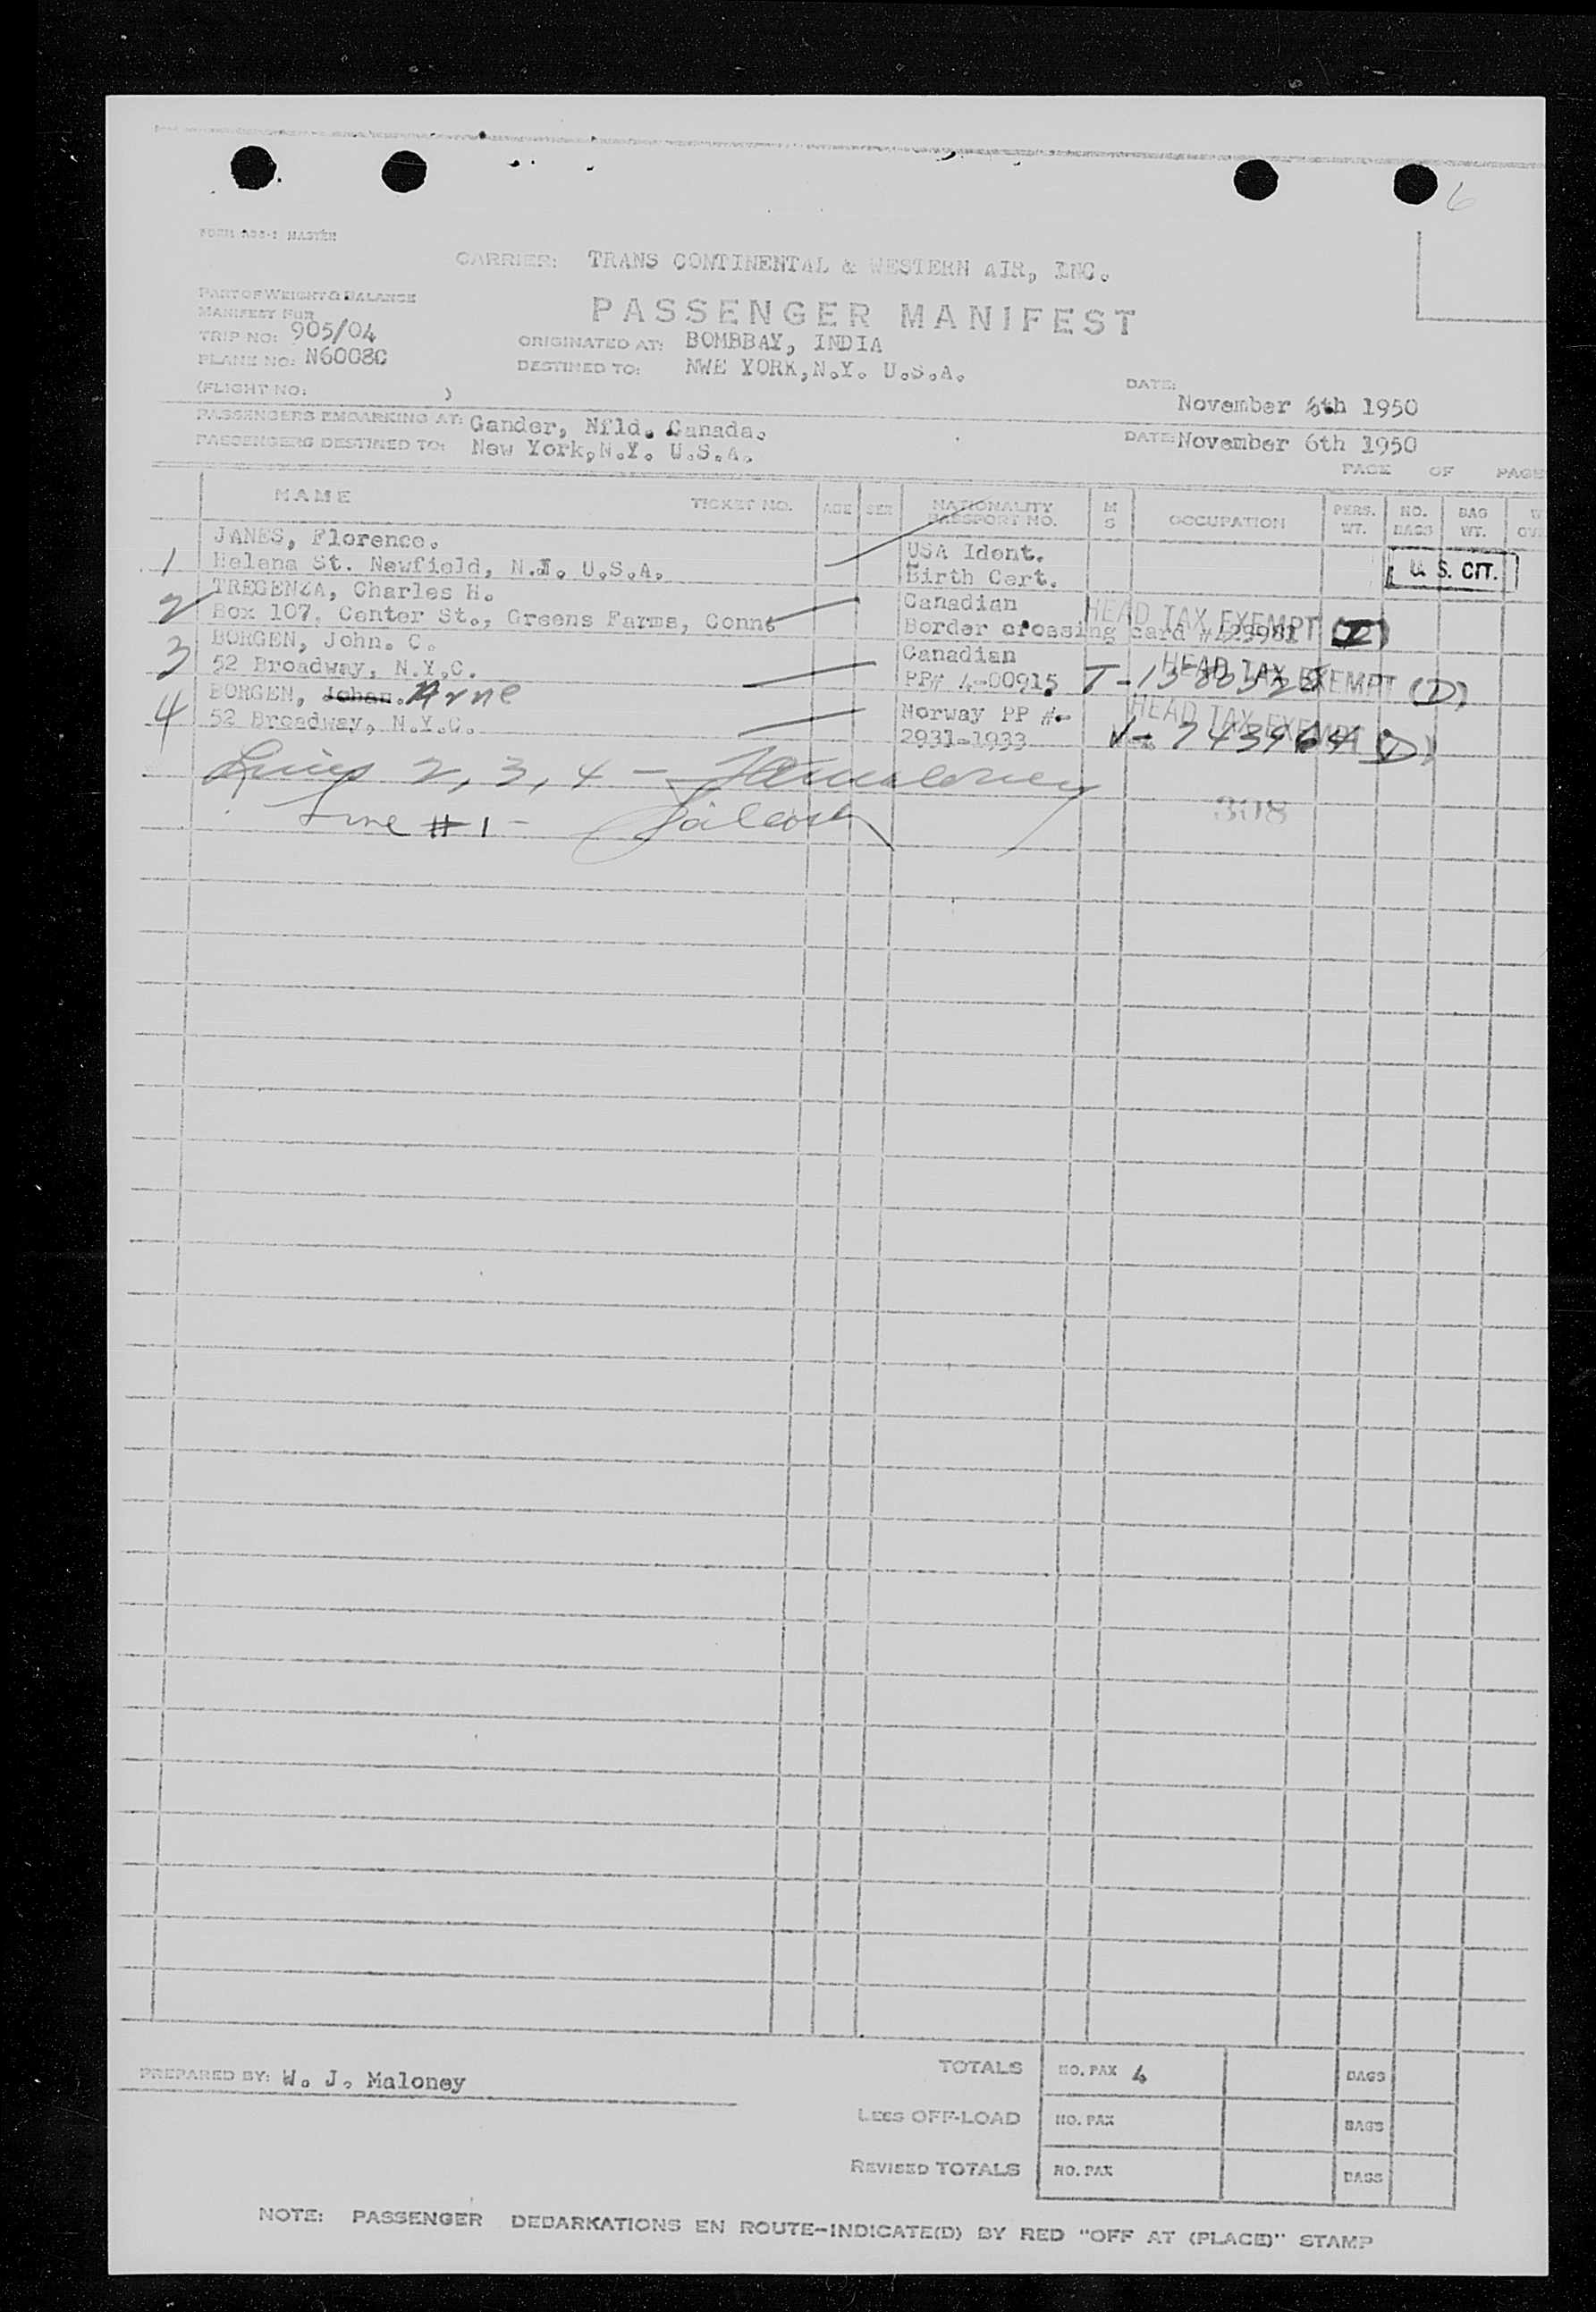 6
FORM 233-1 MASTER
CARRIER: TRANS CONTINENTAL & WESTERN AIR, INC.
PART OF WEIGHT & BALANCE
MANIFEST FOR
PASSENGER MANIFEST
TRIP NO: 905/04
ORIGINATED AT: BOMBBAY, INDIA
PLANE NO: N6008C
DESTINED TO: NWE YORK, N.Y. U.S.A.
(FLIGHT NO: )
DATE: November 6th 1950
PASSENGERS EMBARKING AT: Gander, Nfld. Canada.
PASSENGERS DESTINED TO: New York, N.Y. U.S.A.
DATE: November 6th 1950
PAGE OF PAGE
NAME TICKET NO. AGE SEX NATIONALITY PASSPORT NO. M S OCCUPATION PERS. WT. NO. BAGS BAG WT.
JANES, Florence. USA Ident.
1 Helena St. Newfield, N.J. U.S.A. Birth Cert. U.S. CIT.
TREGENZA, Charles H. Canadian HEAD TAX EXEMPT
2 Box 107, Center St., Greens Farms, Conn. Border crossing card
BORGEN, John. C. Canadian HEAD TAX EXEMPT (D)
3 52 Broadway, N.Y.C. PP# 4-00915
BORGEN, Johan. Arne Norway PP #- HEAD TAX EXEMPT (D)
4 52 Broadway, N.Y.C. 2931-1933 V-743964
Lines 2, 3, 4 -
308
Line #1 -
PREPARED BY: W. J. Maloney
TOTALS NO. PAX 4 BAGS
LESS OFF-LOAD NO. PAX BAGS
REVISED TOTALS NO. PAX BAGS
NOTE: PASSENGER DEBARKATIONS EN ROUTE-INDICATE(D) BY RED "OFF AT (PLACE)" STAMP